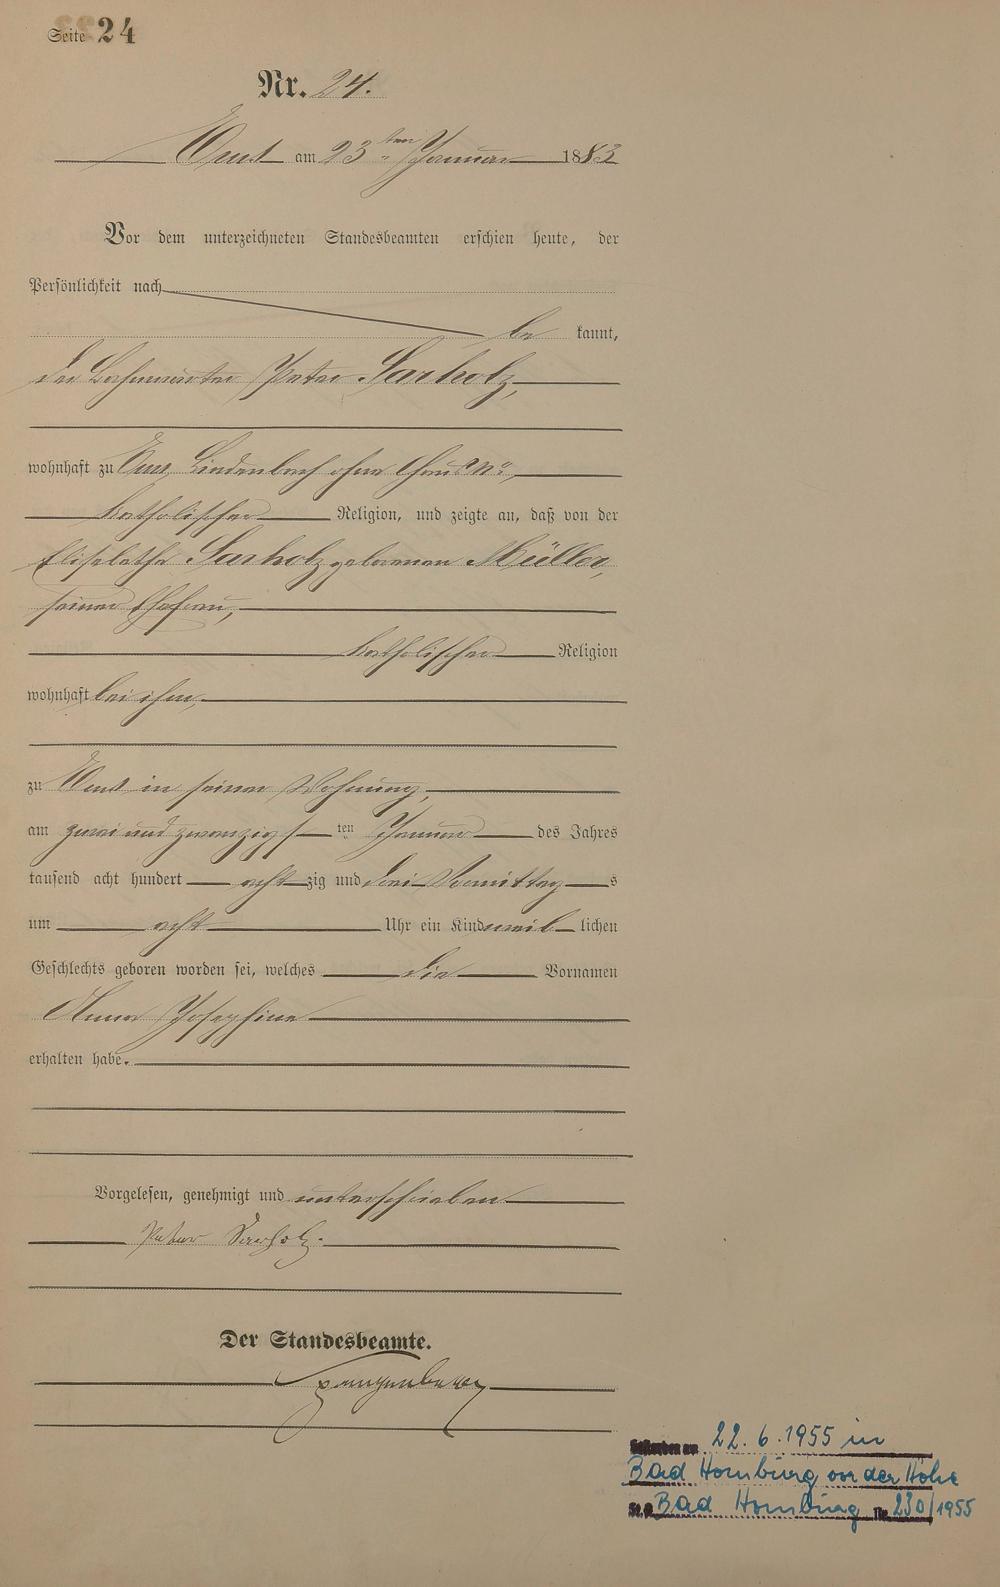 Seite 24
Nr. 24.
Ems am 23ten Januar 1883
Vor dem unterzeichneten Standesbeamten erschien heute, der
Persönlichkeit nach
be kannt,
der Bahnwärter Peter Sarholz,
wohnhaft zu Ems, Lindenbach ohne Haus No,
katholischer Religion, und zeigte an, daß von der
Elisabetha Sarholz geborenen Müller,
seiner Ehefrau,
katholischer Religion
wohnhaft bei ihm,
zu Ems in seiner Wohnung,
am zwei und zwanzigs ten Januar des Jahres
tausend acht hundert acht zig und drei Vormittag s
um acht Uhr ein Kind weib lichen
Geschlechts geboren worden sei, welches die Vornamen
Anna Josephine
erhalten habe.
Vorgelesen, genehmigt und unterschrieben
Peter Sarholz.
Der Standesbeamte.
Spangenberg
Gestorben am 22.6.1955 in
Bad Homburg vor der Höhe
St.A. Bad Homburg Nr. 230/1955